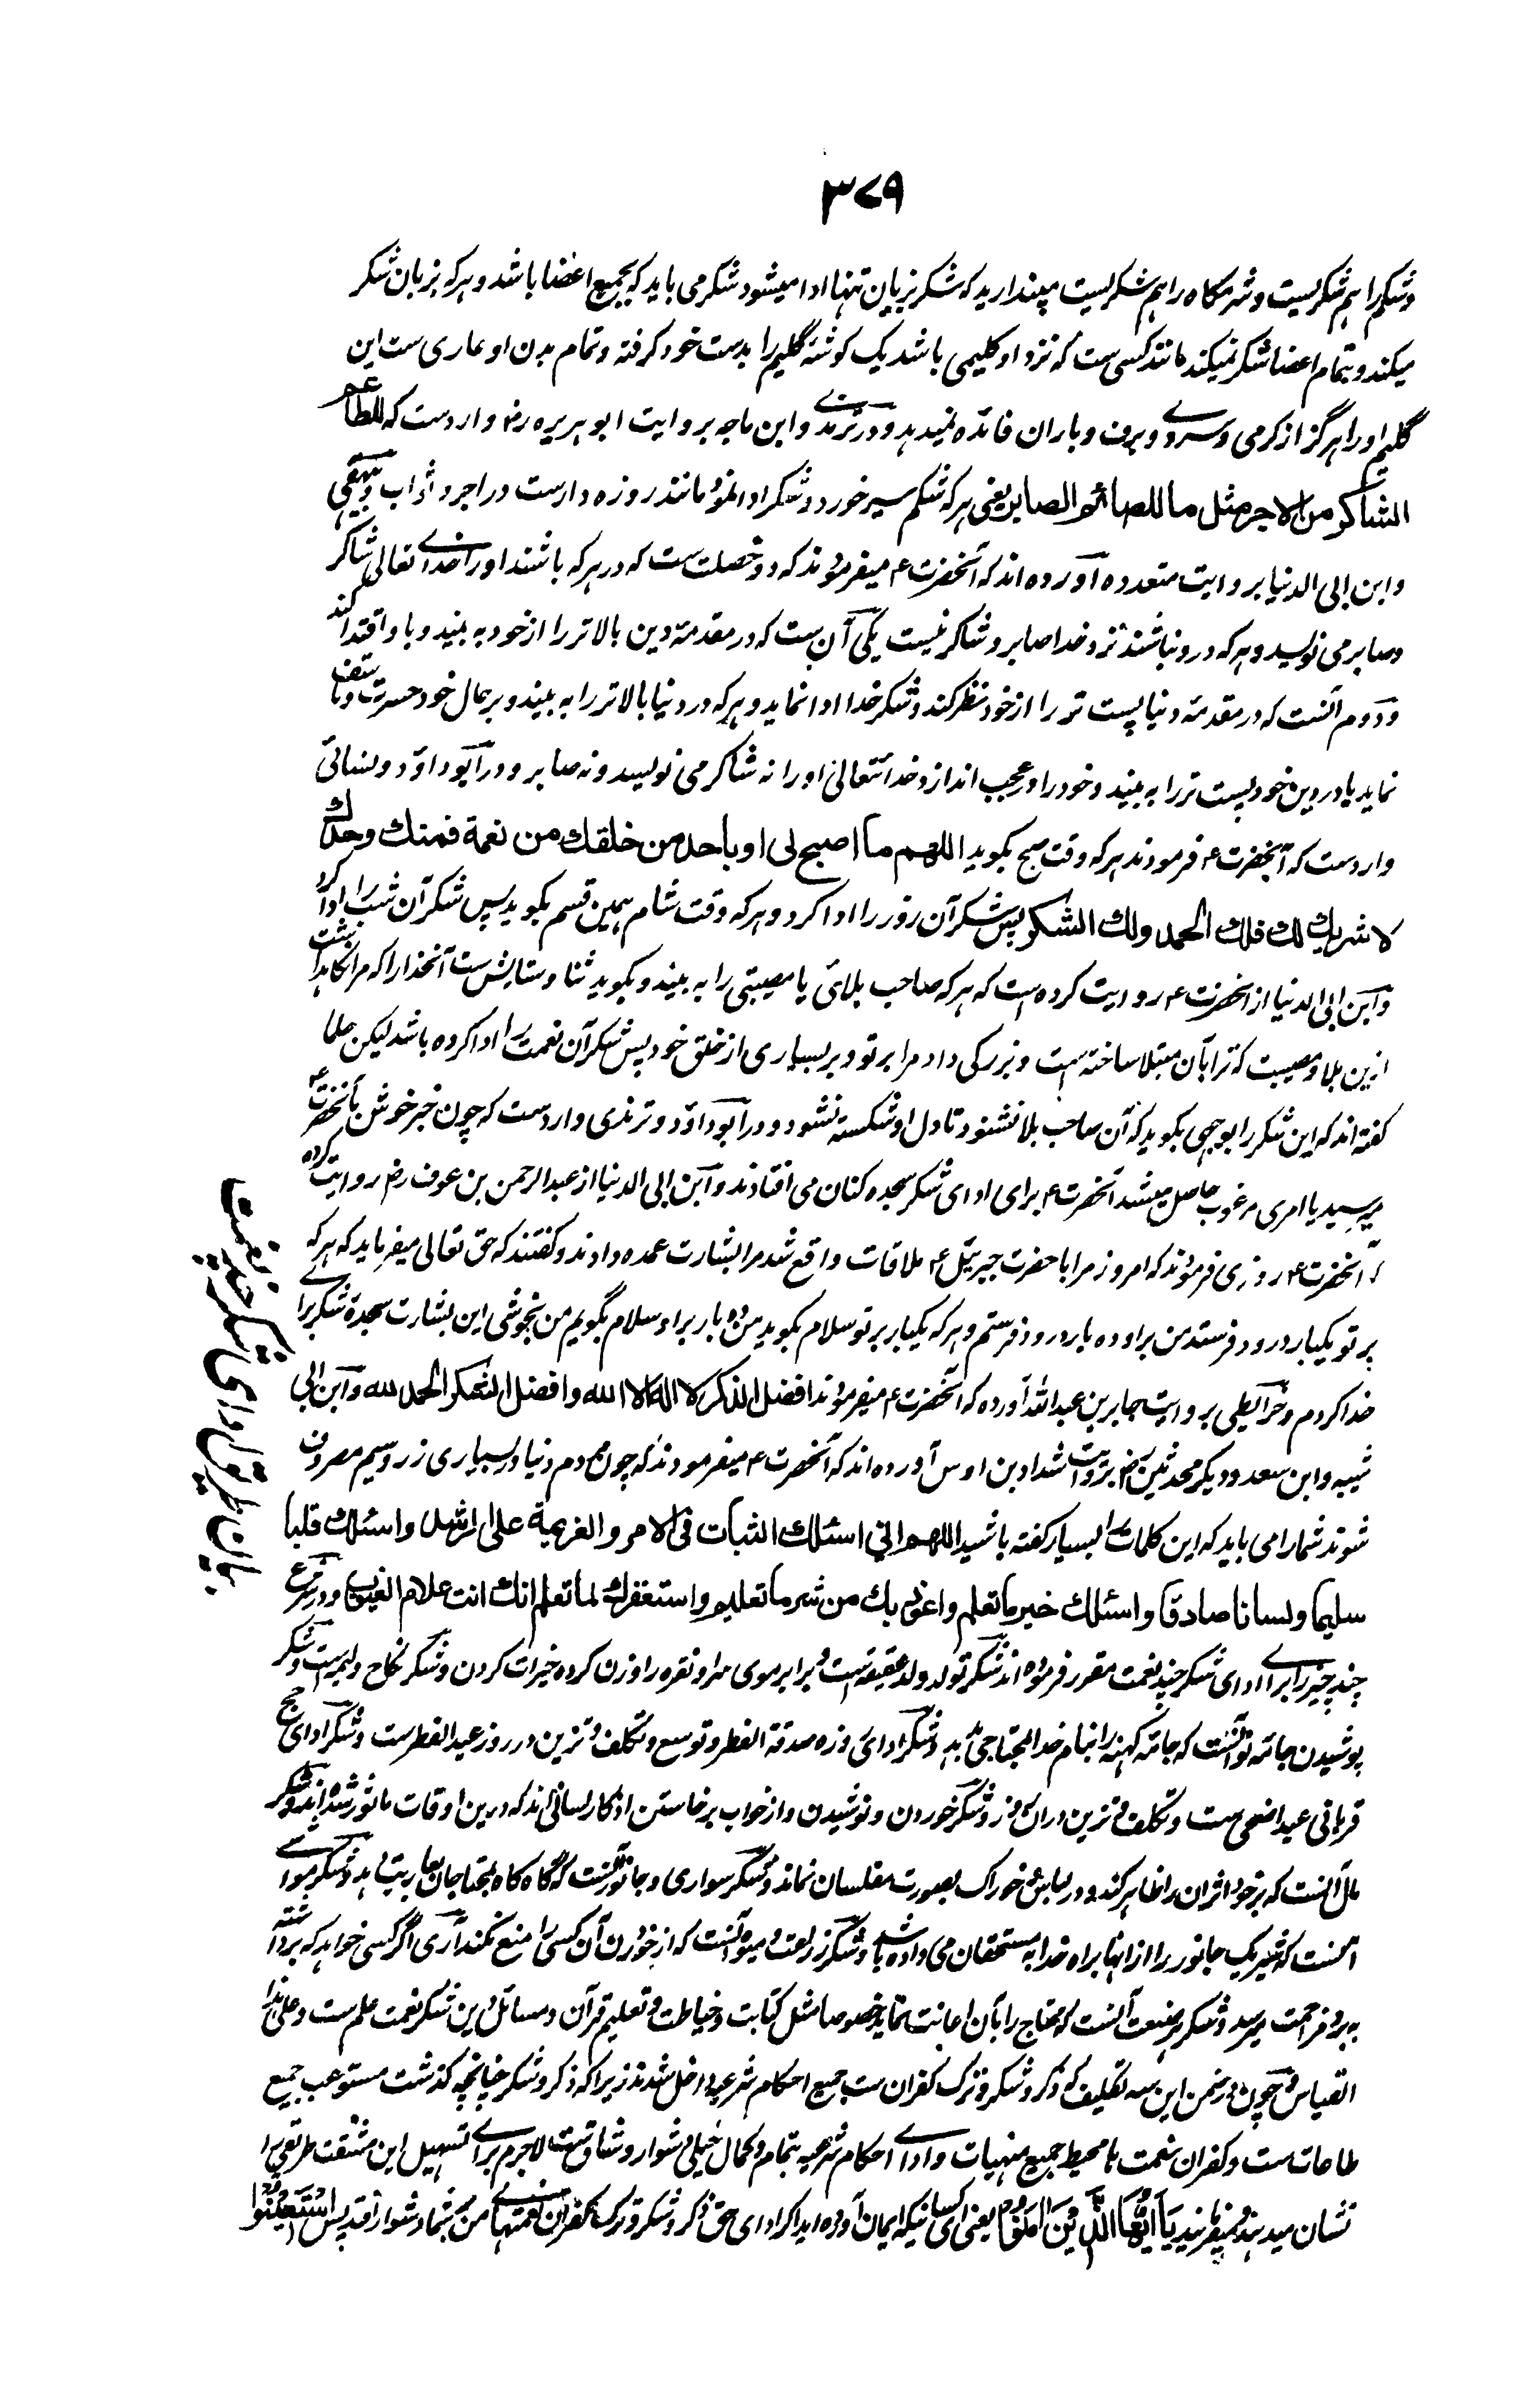 ۳۷۹
و شکم را هم شکریست و شرمگاه را هم شکریست مپندارید که شکر بزبان تنها ادا میشود شکر می باید که بجمیع اعضا باشد و هر که بزبان شکر
میکند و بتمام اعضا شکر نمیکند مانند کسی ست که نزد او گلیمی باشد یک گوشهٔ گلیم را بدست خود گرفته و تمام بدن او عاری ست این
گلیم او را هرگز از گرمی و سردے و برف و باران فائده نمیدهد و در ترمذے و ابن ماجه بروایت ابو هریره رض وارد ست که للطاعم
الشاکر من الاجر مثل ما للصائم الصابر یعنی هر که شکم سیر خورد و شکر ادا نمود مانند روزه دار ست در اجر و ثواب و بیهقی
و ابن ابی الدنیا بروایت متعدده آورده اند که آنحضرت ؐ میفرمودند که دو خصلت ست که در هر که باشند او را خداے تعالی شاکر
و صابر می نویسد و هر که درو نباشند نزد خدا صابر و شاکر نیست یکی آن ست که در مقدمهٔ دین بالاتر را از خود به بیند و باو اقتدا کند
و دوم آنست که در مقدمهٔ دنیا پست تر را از خود نظر کند و شکر خدا ادا نماید و هر که در دنیا بالاتر را به بیند و بر حال خود حسرت و تاسف
نماید یا در دین خود پست تر را به بیند و خود را در عجب اندازد خدائتعالی او را نه شاکر می نویسد و نه صابر و در ابو داؤد و نسائی
وارد ست که آنحضرت ؐ فرمودند هر که وقت صبح بگوید اللهم ما اصبح لی او باحد من خلقك من نعمة فمنك وحدك
لا شریك لك فلك الحمد ولك الشکر پس شکر آن روز را ادا کرد و هر که وقت شام همین قسم بگوید پس شکر آن شب را ادا کرد
و ابن ابی الدنیا از آنحضرت ؐ روایت کرده است که هر که صاحب بلائی یا مصیبتی را به بیند و بگوید ثنا و ستایش ست آنخدا را که مرا نگاهداشت
ازین بلا و مصیبت که ترا بآن مبتلا ساخته است و بزرگی داد مرا بر تو و بر بسیاری از خلق خود پس شکر آن نعمت را ادا کرده باشد لیکن علما
گفته اند که این شکر را بوجهی بگوید که آن صاحب بلا نشنود تا دل او شکسته نشود و در ابو داؤد و ترمذی وارد ست که چون خبر خوش بآنحضرت ؐ
میرسید یا امری مرغوب حاصل میشد آنحضرت ؐ برای ادای شکر سجده کنان می افتادند و ابن ابی الدنیا از عبد الرحمن بن عوف رض روایت کرده
که آنحضرت ؐ روزی فرمودند که امروز مرا با حضرت جبرئیل ؑ ملاقات واقع شد مرا بشارت عمده دادند و گفتند که حق تعالی میفرماید که هر که
بر تو یکبار درود فرستد من بر او ده بار درود فرستم و هر که یکبار بر تو سلام بگوید من ده بار بر او سلام بگویم من بخوشی این بشارت سجدهٔ شکر براے
خدا کردم و خرائطی بروایت جابر بن عبد الله آورده که آنحضرت ؐ میفرمودند افضل الذکر لا اله الا الله و افضل الشکر الحمد لله و ابن ابی
شیبه و ابن سعد و دیگر محدثین بروایت شداد بن اوس آورده اند که آنحضرت ؐ میفرمودند که چون مردم دنیا در بسیاری زر و سیم مصروف
شوند شما را می باید که این کلمات را بسیار گفته باشید اللهم انی اسئلك الثبات فی الامر والعزیمة علی الرشد واسئلك قلبا
سلیما ولسانا صادقا واسئلك خیر ما تعلم واعوذ بك من شر ما تعلم واستغفرك لما تعلم انك انت علام الغیوب و در شرع
چند چیز را براے ادای شکر چند نعمت مقرر فرموده اند شکر تولد ولد عقیقه است و برابر موی سر او نقره را وزن کرده خیرات کردن و شکر نکاح ولیمه است و شکر
پوشیدن جامهٔ نو آنست که جامهٔ کهنه را بنام خدا بمحتاجی بدهد و شکر ادای روزه صدقة الفطر و توسع و تکلف و تزین در روز عید الفطر ست و شکر ادای حج
قربانی عید اضحی ست و تکلف و تزین دران روز و شکر خوردن و نوشیدن و از خواب برخاستن اذکار لسانی اند که درین اوقات ماثور شده اند و شکر
مال آنست که بر خود اثر آن را ظاهر کند و در لباس و خوراک بصورت مفلسان نماند و شکر سواری و جانور آنست که گاه گاه بمحتاجان عاریت بدهد و شکر مواشی
آنست که شیر یک جانور را از آنها براه خدا به مستحقان می داده باشد و شکر زراعت و میوه آنست که از خوردن آن کسی را منع نکند آری اگر کسی خواهد که برداشته
به برد مزاحمت میرسد و شکر هر صنعت آنست که محتاج را بآن اعانت نماید خصوصا مثل کتابت و خیاطت و تعلیم قرآن و مسائل دین شکر نعمت علم ست و علی هذا
القیاس و چون در ضمن این سه تکلیف که ذکر و شکر و ترک کفران ست جمیع احکام شرعیه داخل شدند زیرا که ذکر و شکر چنانچه گذشت مستوعب جمیع
طاعات ست و کفران نعمت ها محیط جمیع منهیات و اداے احکام شرعیه بتمام و کمال خیلی دشوار و شاق ست لاجرم براے تسهیل این مشقت طریقی را
نشان میدهند و میفرمایند یَا أَیُّهَا الَّذِینَ آمَنُوا یعنی ای کسانیکه ایمان آورده اید اگر ادای حق ذکر و شکر و ترک کفران نعمتهاے من بر شما دشوار افتد پس اسْتَعِینُوا
بیان طریق ادای شکر چند نعمت